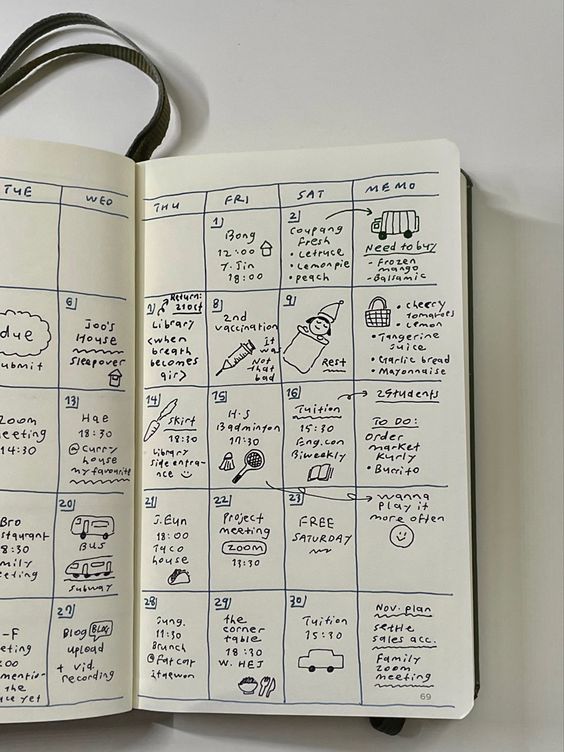 TUE
WED
THU
FRI
SAT
MEMO
1)
Bong
12:00
Y.Jin
18:00
2)
Coupang
fresh
• Lettuce
• Lemonpie
• peach
Need to buy
- Frozen
mango
- Balsamic
due
submit
6)
Joo's
House
Sleepover
7)
Return:
21 Oct
Library
<when
breath
becomes
air>
8)
2nd
vaccination
It
was
Not
that
bad
9)
Rest
• cherry
tomatoes
• Lemon
• Tangerine
Juice
• Garlic bread
• Mayonnaise
zoom
meeting
14:30
13)
Hae
18:30
@ Curry
house
my favourite
14)
skirt
18:30
Library
side entra-
nce
15)
H.S
Badminton
17:30
16)
Tuition
15:30
Eng. con
Biweekly
2 Students
TO DO:
order
market
kurly
• Burrito
Bro
staurant
8:30
mily
eeting
20)
BUS
subway
21)
J.Eun
18:00
Taco
house
22)
Project
meeting
zoom
13:30
23)
FREE
SATURDAY
wanna
play it
more often
-F
eting
:00
mentio-
the
ce yet
27)
Blog BLOG
upload
+ vid.
recording
28)
Sung.
11:30
Brunch
@Fat cat
Itaewon
29)
the
corner
table
18:30
W. HEJ
30)
Tuition
15:30
Nov. plan
settle
sales acc.
Family
zoom
meeting
69